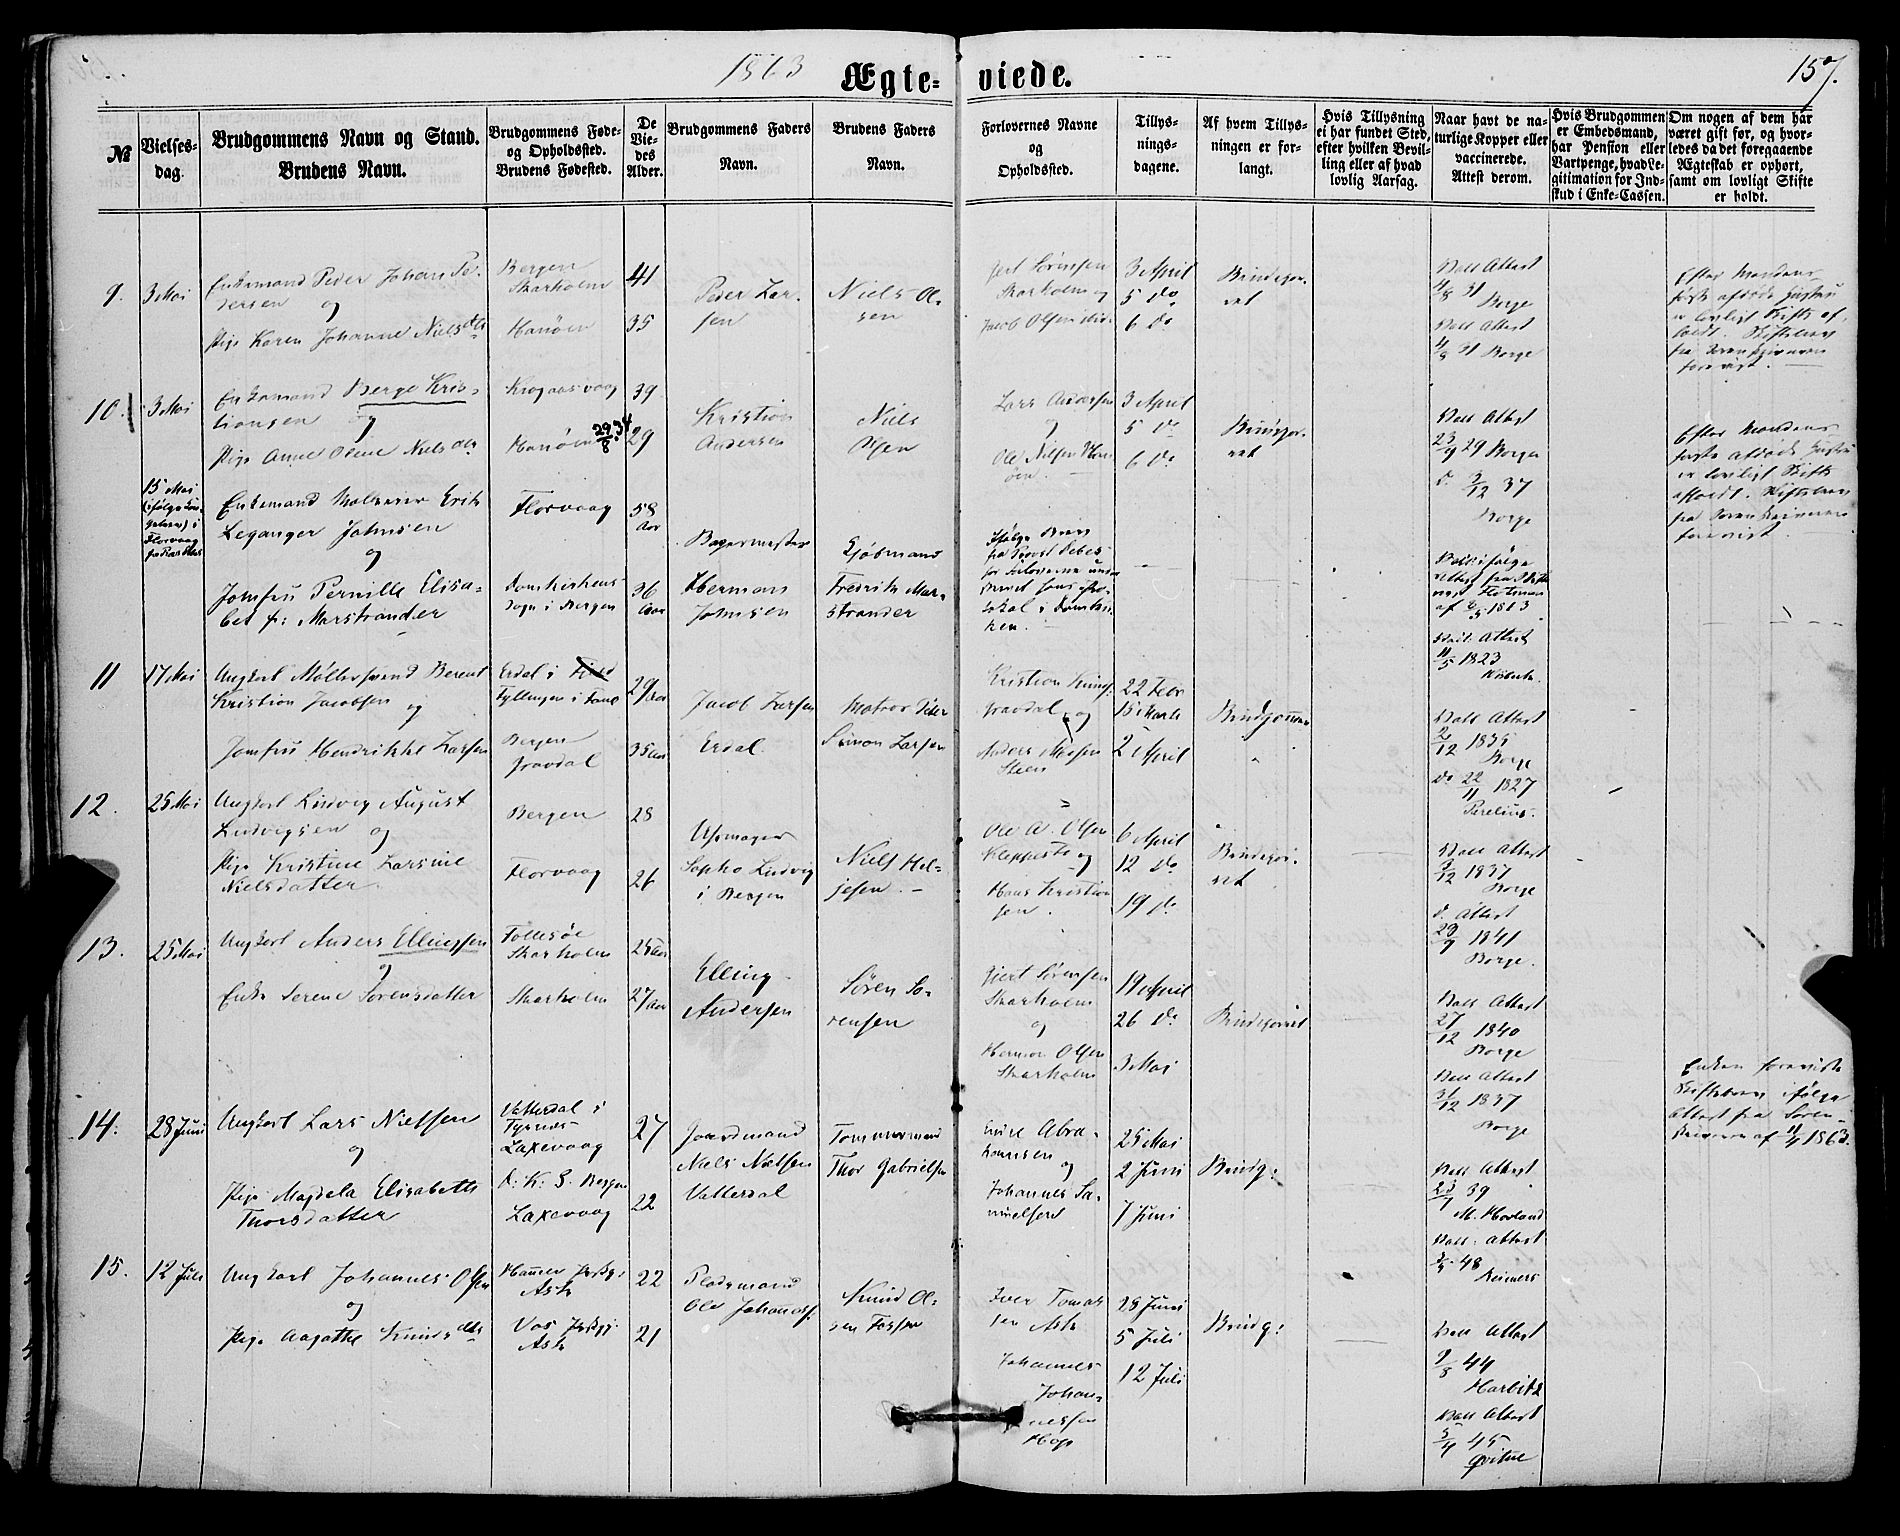 1863
Ægte-viede.
157.
№
Vielses-dag.
Brudgommens Navn og Stand.
Brudens Navn.
Brudgommens Føde- og Opholdssted.
Brudens Fødested.
De Viedes Alder.
Brudgommens Faders Navn.
Brudens Faders Navn.
Forlovernes Navne og Opholdssted.
Tillysningsdagene.
Af hvem Tillysningen er forlangt.
Hvis Tillysning ei har fundet Sted, efter hvilken Bevilling eller af hvad lovlig Aarsag.
Naar havt de naturlige Kopper eller vaccinerede. Attest derom.
Hvis Brudgommen er Embedsmand, har Pension eller Vartpenge, hvad Legitimation for Indskud i Enke-Cassen.
Om nogen af dem har været gift før, og hvorledes da det foregaaende Ægteskab er ophørt, samt om lovligt Skifte er holdt.
9. 3 Mai
Enkemand Peder Johan Pedersen
og
Pige Karen Johanne Nielsdtr
Bergen
Skarholm
Hanøen
41
35
Peder Larsen
Niels Olsen
Gert Sørensen
Skarholm og
Jacob Olsen ibid.
3 April
5 do
6 do
Brudegommet
Vacc Attest
4/8 31
Borge
Vacc Attest
4/8 31 Borge
Efter Mandens
første afdøde Hustru
er lovligt Skifte afholdt. Skiftebrev
fra Sorenskriveren
foreviist.
10. 3 Mai
Enkemand Berge Kristiansen
og
Pige Anne Oline Nielsdtr
Krogaasvaag
Hanøen 29/8 34
39
29
Kristian
Andersen
Niels
Olsen
Lars Andersen
og
Ole Nilsen Hanøen.
3 April
5 do
6 do
Vacc Attest
23/9 29 Borge
d. 3/12 37
Borge
Efter Mandens
første afdøde Hustru
er lovligt Skifte
afholdt. Skiftebrev
fra Sorenskriveren
foreviist.
15 Mai
Florvaag
Enkemand Erik
Leganger Johnsen
og
Jomfru Pernille Elisabet f: Marstrander
Florvaag
Domkirkens
Sogn i Bergen
58 Aar
36 Aar
Bagermester
Herman
Johnsen
Kjøbmand
Fredrik Marstrander
Ifølge Brev
fra Provst
1813
Attest
11/5 1823
11 17 Mai
Ungkarl Møllersvend Berent
Kristian Jacobsen og
Jomfru Hendrikke Larsen
Erdal i
Fyllingen i Fane
Bergen
Gravdal
29 Aar
35 Aar
Jacob Larsen
Erdal
Matros Peder
Simon Larsen
Kristian
Gravdal og
Anders Monsen
Steen
22 Febr
15 Marts
2 April
Brudgommen
"
Vacc Attest
2/12 1835
Borge
do 22/11 1827
12. 25 Mai
Ungkarl Ludvig August
Ludvigsen og
Pige Kristine Larsine
Nielsdatter.
Bergen
Florvaag
28
26
Uhrmager
Sopho Ludvig
i Bergen
Niels Heljesen
Ole A. Olsen
Kleppestø og
Hans Kristiansen.
6 April
12 do
19 do
Vacc Attest
3/12 1837
Borge
d. Attest
29/9 1841
Borge.
13. 25 Mai
Ungkarl Anders Ellingsen
og
Enke Serene Sørensdatter
Follesøe
Skarholm
Skarholm
25 Aar
27 Aar
Elling
Andersen
Søren Sørensen
Gjert Sørensen
Skarholm
og
Herman Olsen
Skarholm
19 April
26 do
3 Mai
Vacc Attest
27/12 1840
Borge
Vacc Attest
31/12 1837
Borge
Enken foreviste
Skiftebrev ifølge
Attest fra Sorenskriveren af 11/4 1863.
14. 28 Juni
Ungkarl Lars Nielsen
og
Pige Magdela Elisabeth
Thorsdatter
Vatterdal i
Tysnes
Laxevaag
D: K: S. Bergen
Laxevaag
27
22
Gaardmand
Niels Nielsen
Vatterdal
Tømmermand
Thor Gabrielsen
Endre Abrahamsen
og
Johannes Samuelsen
25 Mai
2 Juni
7 Juni
Brudg:
Vacc Attest
23/7 39
M. Hovland
Vacc: Attest
48
Reimers
15. 12 Juli
Ungkarl Johannes Olsen
og
Pige Aagathe Knudsdtr
Hammer Prstgj:
Ask
Vos Prstgj:
Ask
22
21
Pladsmand
Ole Johans.
Knud Olsen
Iver Tomassen Ask
Johannes
Johannessen
Hop
28 Juni
5 Juli
12 Juli
Brudg:
Vacc Attest
9/8 44
Harbitz
Vacc Attest
5/4 45